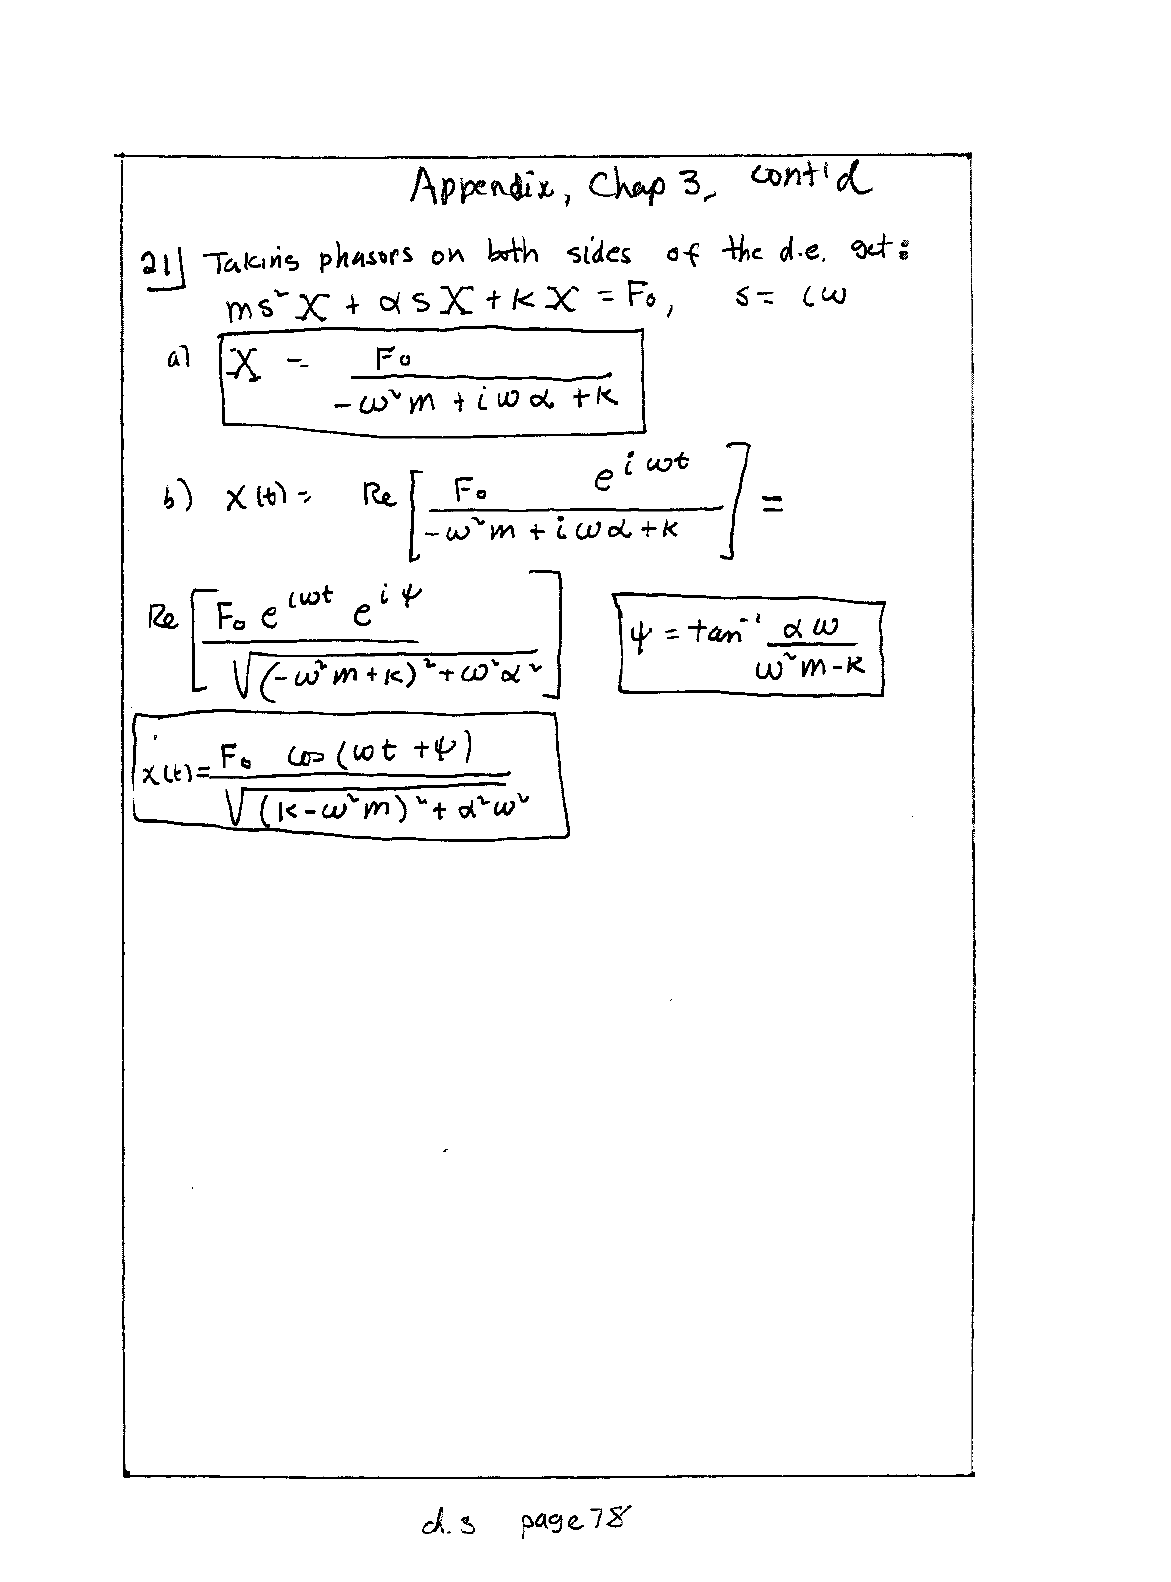 Appendix, Chap 3, cont'd
21] Taking phasors on both sides of the d.e. get:
ms²X + αsX + kX = F₀, s = iω
a) X = F₀ / (-ω²m + iωα + k)
b) x(t) = Re [ F₀ e^{iωt} / (-ω²m + iωα + k) ] =
Re [ F₀ e^{iωt} e^{iψ} / √((-ω²m + k)² + ω²α²) ] ψ = tan⁻¹ αω / (ω²m - k)
x(t) = F₀ cos(ωt + ψ) / √((k - ω²m)² + α²ω²)
ch. 3 page 78